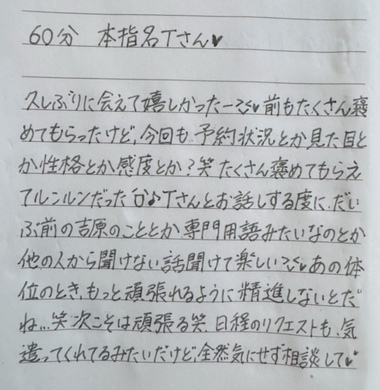 60分 本指名Tさん♥
久しぶりに会えて嬉しかったー>3♥前もたくさん褒
めてもらったけど、今回も予約状況とか見た目と
か性格とか感度とか?笑 たくさん褒めてもらえ
てルンルンだった Tさんとお話しする度に、だい
ぶ前の吉原のこととか専門用語みたいなのとか
他の人から聞けない話聞けて楽しい>3♥あの体
位のとき、もっと頑張れるように精進しないとだ
ね...笑 次こそは頑張る笑 日程のリクエストも、気
遣ってくれてるみたいだけど全然気にせず相談して♥